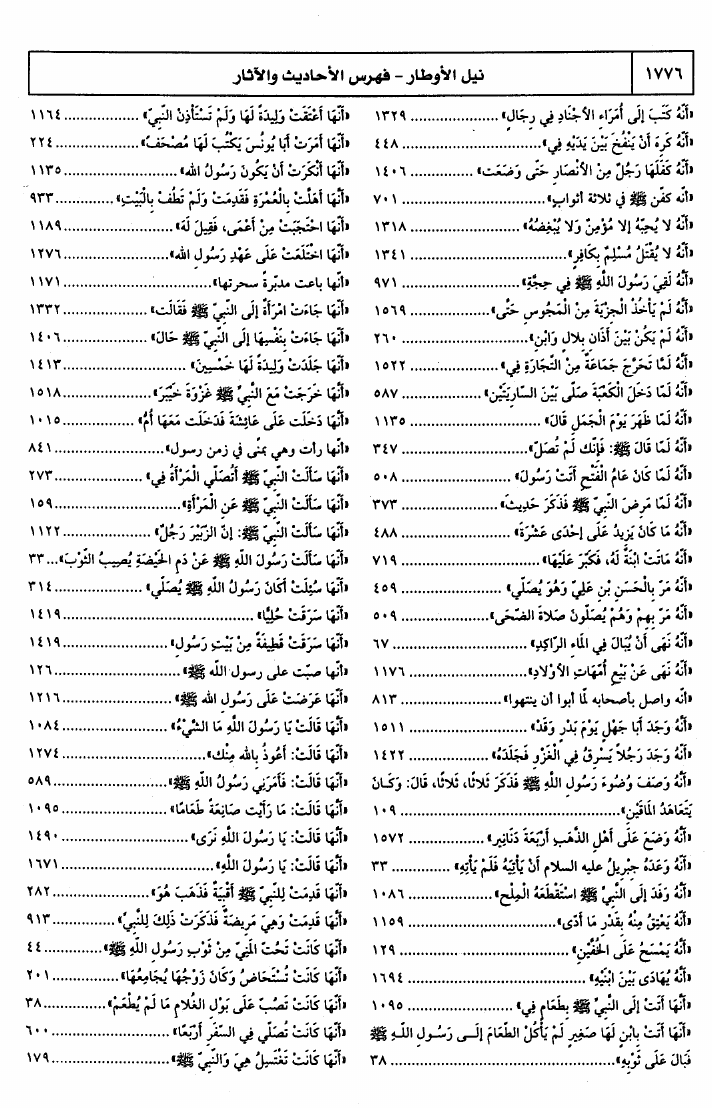 ١٧٧٦
نيل الأوطار - فهرس الأحاديث والآثار
«أَنَّهُ كَتَبَ إلَى أُمَرَاءِ الأجْنَادِ فِي رِجَالٍ» ..................... ١٣٢٩
«أَنَّهُ كَرِهَ أَنْ يَنْفُخَ بَيْنَ يَدَيْهِ فِي» ................................. ٤٤٨
«أَنَّهُ كَفَّلَهَا رَجُلٌ مِنْ الأنْصَارِ حَتَّى وَضَعَتْ» .............. ١٤٠٦
«أنّه كفن ﷺ في ثلاثة أثوابٍ» ................................. ٧٠١
«أَنَّهُ لا يُحِبُّهُ إلا مُؤْمِنٌ وَلا يُبْغِضُهُ» ......................... ١٣١٨
«أَنَّهُ لا يُقْتَلُ مُسْلِمٌ بِكَافِرٍ» ................................... ١٣٤١
«أَنَّهُ لَقِيَ رَسُولَ اللَّهِ ﷺ فِي حِجَّةِ» ......................... ٩٧١
«أَنَّهُ لَمْ يَأْخُذْ الْجِزْيَةَ مِنْ الْمَجُوسِ حَتَّى» ................ ١٥٦٩
«أَنَّهُ لَمْ يَكُنْ بَيْنَ أَذَانِ بِلالٍ وَابْنِ» ............................ ٢٦٠
«أَنَّهُ لَمَّا تَحَرَّجَ جَمَاعَةٌ مِنْ التِّجَارَةِ فِي» ................... ١٥٢٢
«أَنَّهُ لَمَّا دَخَلَ الْكَعْبَةَ صَلَّى بَيْنَ السَّارِيَتَيْنِ» ................ ٥٨٧
«أَنَّهُ لَمَّا ظَهَرَ يَوْمَ الْجَمَلِ قَالَ» ............................... ١١٣٥
«أَنَّهُ لَمّا قَالَ ﷺ: فَإنَّك لَمْ تُصَلِّ» ............................ ٣٤٧
«أَنَّهُ لَمّا كَانَ عَامُ الْفَتْحِ أَتَتْ رَسُولَ» ........................ ٥٠٨
«أَنَّهُ لَمَّا مَرِضَ النَّبِيّ ﷺ فَذَكَرَ حَدِيثَ» ................... ٣٧٣
«أَنَّهُ مَا كَانَ يَزِيدُ عَلَى إحْدَى عَشْرَةَ» ....................... ٤٨٨
«أَنَّهُ مَاتَتْ ابْنَةٌ لَهُ، فَكَبَّرَ عَلَيْهَا» ............................ ٧١٩
«أَنَّهُ مَرَّ بِالْحَسَنِ بْنِ عَلِيٍّ وَهُوَ يُصَلِّي» ....................... ٤٥٩
«أَنَّهُ مَرَّ بِهِمْ وَهُمْ يُصَلّونَ صَلاةَ الضّحَى» ................... ٥٠٩
«أَنَّهُ نَهَى أَنْ يُبَالَ فِي الْمَاءِ الرّاكِدِ» ............................ ٦٧
«أَنَّهُ نَهَى عَنْ بَيْعِ أُمَّهَاتِ الأوْلادِ» ............................ ١١٧٦
«أنّه واصل بأصحابه لمّا أبوا أن ينتهوا» ....................... ٨١٣
«أَنَّهُ وَجَدَ أَبَا جَهْلٍ يَوْمَ بَدْرٍ وَقَدْ» ............................ ١٥١١
«أَنَّهُ وَجَدَ رَجُلًا يَسْرِقُ فِي الْغَزْوِ فَجَلَدَهُ» ................... ١٤٢٢
«أَنَّهُ وَصَفَ وُضُوءَ رَسُولِ اللَّهِ ﷺ فَذَكَرَ ثَلاثًا، ثَلاثًا، قَالَ: وَكَانَ
يَتَعَاهَدُ الْمَاقَيْنِ» ............................................... ١٠٩
«أَنَّهُ وَضَعَ عَلَى أَهْلِ الذَّهَبِ أَرْبَعَةَ دَنَانِيرَ» ................. ١٥٧٢
«أَنَّهُ وَعَدَهُ جِبْرِيلُ عليه السلام أَنْ يَأْتِيَهُ فَلَمْ يَأْتِهِ» ............... ٣٣
«أَنَّهُ وَفَدَ إلَى النَّبِيِّ ﷺ اسْتَقْطَعَهُ الْمِلْحَ» ................... ١٠٨٦
«أَنَّهُ يَعْتِقُ مِنْهُ بِقَدْرِ مَا أَدّى» ............................... ١١٥٩
«أَنَّهُ يَمْسَحُ عَلَى الْخُفَّيْنِ» ..................................... ١٢٩
«أَنَّهُ يُهَادَى بَيْنَ ابْنَيْهِ» ....................................... ١٦٩٤
«أَنَّهَا أَتَتْ إلَى النَّبِيِّ ﷺ بِطَعَامٍ فِي» ......................... ١٠٩٥
«أَنَّهَا أَتَتْ بِابْنٍ لَهَا صَغِيرٍ لَمْ يَأْكُلْ الطَّعَامَ إلَى رَسُولِ اللَّهِ ﷺ
فَبَالَ عَلَى ثَوْبِهِ» ................................................ ٣٨
«أَنَّهَا أَعْتَقَتْ وَلِيدَةً لَهَا وَلَمْ تَسْتَأْذِنْ النَّبِيَّ» .................. ١١٦٤
«أَنَّهَا أَمَرَتْ أَبَا يُونُسَ يَكْتُبُ لَهَا مُصْحَفً» .................. ٢٢٤
«أَنَّهَا أَنْكَرَتْ أَنْ يَكُونَ رَسُولُ الله» .......................... ١١٣٥
«أَنَّهَا أَهَلَّتْ بِالْعُمْرَةِ فَقَدِمَتْ وَلَمْ تَطُفْ بِالْبَيْتِ» ............ ٩٣٣
«أَنَّهَا احْتَجَبَتْ مِنْ أَعْمَى، فَقِيلَ لَهُ» ........................ ١١٨٩
«أَنَّهَا اخْتَلَعَتْ عَلَى عَهْدِ رَسُولِ الله» ........................ ١٢٧٦
«أنّها باعت مدبّرةً سحرتها» ................................. ١١٧١
«أَنَّهَا جَاءَتْ امْرَأَةٌ إلَى النَّبِيِّ ﷺ فَقَالَت» .................. ١٣٣٢
«أَنَّهَا جَاءَتْ بِنَفْسِهَا إلَى النَّبِيِّ ﷺ حَالَ» ................... ١٤٠٦
«أَنَّهَا جَلَدَتْ وَلِيدَةً لَهَا خَمْسِينَ» ........................... ١٤١٣
«أَنَّهَا خَرَجَتْ مَعَ النَّبِيِّ ﷺ غَزْوَةَ خَيْبَرَ» .................. ١٥١٨
«أَنَّهَا دَخَلَتْ عَلَى عَائِشَةَ فَدَخَلَت مَعَهَا أُمُّ» ................ ١٠١٥
«أنّها رأت وهي بمنًى في زمن رسول» ........................... ٨٤١
«أَنَّهَا سَأَلَتْ النَّبِيَّ ﷺ أَتُصَلِّي الْمَرْأَةُ فِي» ..................... ٢٧٣
«أَنَّهَا سَأَلَتْ النَّبِيَّ ﷺ عَنِ الْمَرْأَةِ» ............................ ١٥٩
«أَنَّهَا سَأَلَتْ النَّبِيَّ ﷺ: إنّ الزُّبَيْرَ رَجُلٌ» ................... ١١٢٢
«أَنَّهَا سَأَلَتْ رَسُولَ اللَّهِ ﷺ عَنْ دَمِ الْحَيْضَةِ يُصِيبُ الثَّوْبَ» ... ٣٣
«أَنَّهَا سُئِلَتْ أَكَانَ رَسُولُ اللَّهِ ﷺ يُصَلّي» ..................... ٣١٤
«أَنَّهَا سَرَقَتْ حُلِيًّا» .......................................... ١٤١٩
«أَنَّهَا سَرَقَتْ قَطِيفَةً مِنْ بَيْتِ رَسُولِ» ........................ ١٤١٩
«أنّها صبّت على رسول الله ﷺ» ............................... ١٢٦
«أَنَّهَا عَرَضَتْ عَلَى رَسُولِ الله ﷺ» .......................... ١٢١٦
«أَنَّهَا قَالَتْ يَا رَسُولَ اللَّهِ مَا الشَّيْءُ» ........................ ١٠٨٤
«أَنَّهَا قَالَتْ: أَعُوذُ بِاللَّه مِنْك» .................................. ١٢٧٤
«أَنَّهَا قَالَتْ: فَأَمَرَنِي رَسُولُ اللَّهِ ﷺ» ........................... ٥٨٩
«أَنَّهَا قَالَتْ: مَا رَأَيْت صَانِعَةَ طَعَامًا» ........................ ١٠٩٥
«أَنَّهَا قَالَتْ: يَا رَسُولَ اللَّهِ نَرَى» ............................. ١٤٩٠
«أَنَّهَا قَالَتْ: يَا رَسُولَ اللَّهِ» ................................... ١٦٧١
«أَنَّهَا قَدِمَتْ لِلنَّبِيِّ ﷺ أَقْبِيَةٌ فَذَهَبَ هُوَ» .................... ٢٨٢
«أَنَّهَا قَدِمَتْ وَهِيَ مَرِيضَةٌ فَذَكَرَتْ ذَلِكَ لِلنَّبِيِّ» ............... ٩١٣
«أَنَّهَا كَانَتْ تَحُتّ الْمَنِيَّ مِنْ ثَوْبِ رَسُولِ اللَّهِ ﷺ» ............ ٤٤
«أَنَّهَا كَانَتْ تُسْتَحَاضُ وَكَانَ زَوْجُهَا يُجَامِعُهَا» ............... ٢٠١
«أَنَّهَا كَانَتْ تَصُبّ عَلَى بَوْلِ الْغُلامِ مَا لَمْ يُطْعَمْ» ............. ٣٨
«أَنَّهَا كَانَتْ تُصَلّي فِي السّفَرِ أَرْبَعًا» .......................... ٦٠٠
«أَنَّهَا كَانَتْ تَغْتَسِلُ هِيَ وَالنّبِيّ ﷺ» ......................... ١٧٩